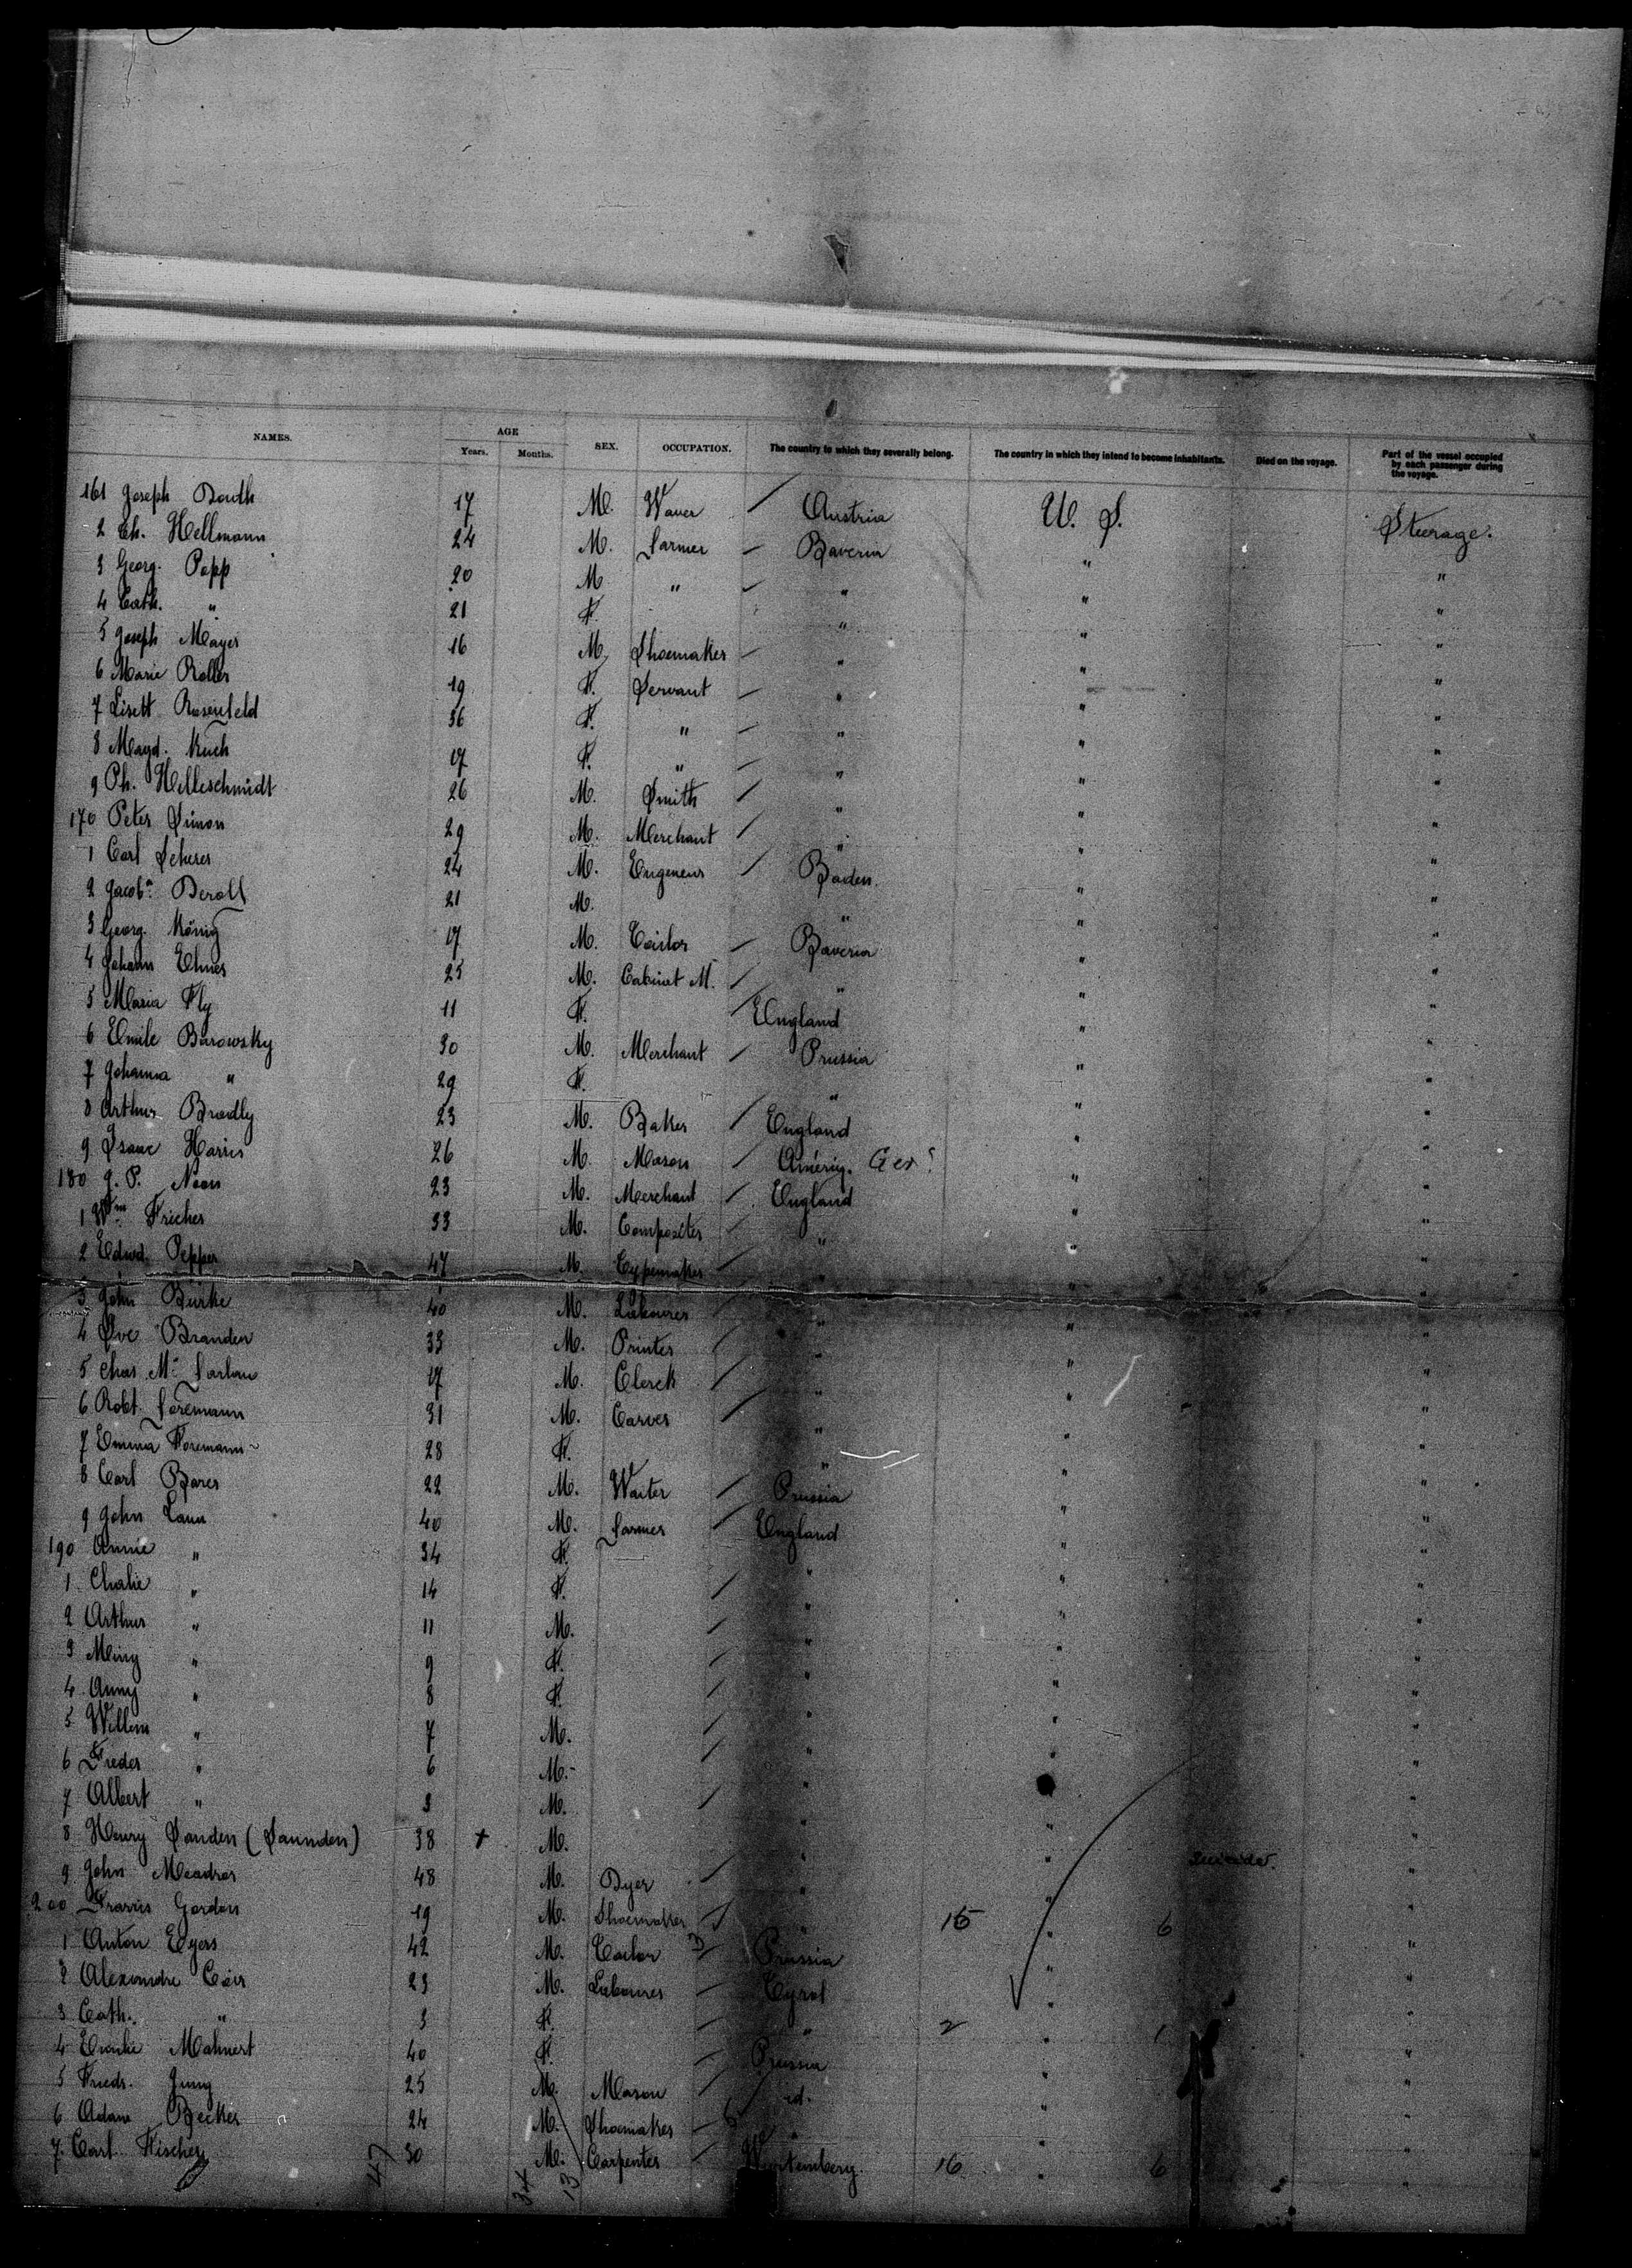 NAMES. AGE Years. Months. SEX. OCCUPATION. The country to which they severally belong. The country in which they intend to become inhabitants. Died on the voyage. Part of the vessel occupied by each passenger during the voyage.
161 Joseph 17 M. Austria U. S. Steerage.
2 Ch. Hellmann 24 M. farmer Baveria " "
3 Georg. Popp 20 M " " " "
4 Cath. " 21 F. " " "
5 Joseph Mayer 16 M. Shoemaker " " "
6 Marie Roller 19 F. Servant " " "
7 Lisett Rosenfeld 36 F. " " " "
8 Magd. Kuch 17 F. " " " "
9 Ph. Helleschmidt 26 M. Smith " " "
170 Peter Simon 29 M. Merchant " " "
1 Carl Scherer 24 M. Baden. " "
2 Jacob Deroll 21 M. " " "
3 Georg. König 17 M. Tailor Baveria " "
4 Johann 25 M. Cabinet M. " " "
5 Maria Fly 11 F. England " "
6 Emile Burowsky 30 M. Merchant Prussia " "
7 Johanna " 29 F. " " "
8 Arthur Bradly 23 M. Baker England " "
9 Isaac Harris 26 M. Mason " "
180 J. P. Noon 23 M. Merchant England " "
1 Wm Fricher 33 M. Compositer " " "
2 Edwd. Pepper 47 M. Typemaker " " "
3 John Burke 40 M. Labourer " " "
4 Branden 33 M. Printer " " "
5 Chas Mc farlan 17 M. Clerck " " "
6 Robt. foremann 31 M. Carver " " "
7 Emma Foremann 28 F. " " "
8 Carl Barer 22 M. Waiter Prussia " "
9 John Lann 40 M. farmer England " "
190 Annie " 34 F. " " "
1 Chalie " 14 F. " " "
2 Arthur " 11 M. " " "
3 Miny " 9 F. " " "
4 Anny " 8 F. " " "
5 Willem " 7 M. " " "
6 Freder " 6 M. " " "
7 Albert " 3 M. " " "
8 Henry Sanden (Saunden) 38 + M. " " Suicide. "
9 John Meadros 48 M. Dyer " " "
200 Gordon 19 M. Shoemaker " 15 " 6 "
1 Anton Eyers 42 M. Tailor Prussia " "
2 Alexandre 23 M. Labourer Tyrol " "
3 Cath. " 3 F. " 2 " 1 "
4 Mahnert 40 F. Prussia " "
5 Frieds. Jung 25 M. Mason id. " "
6 Adam Becker 24 M. Shoemaker " " "
7. Carl Fischer 30 M. Carpenter Wurtemberg. 16 " 6 "
47 34 13